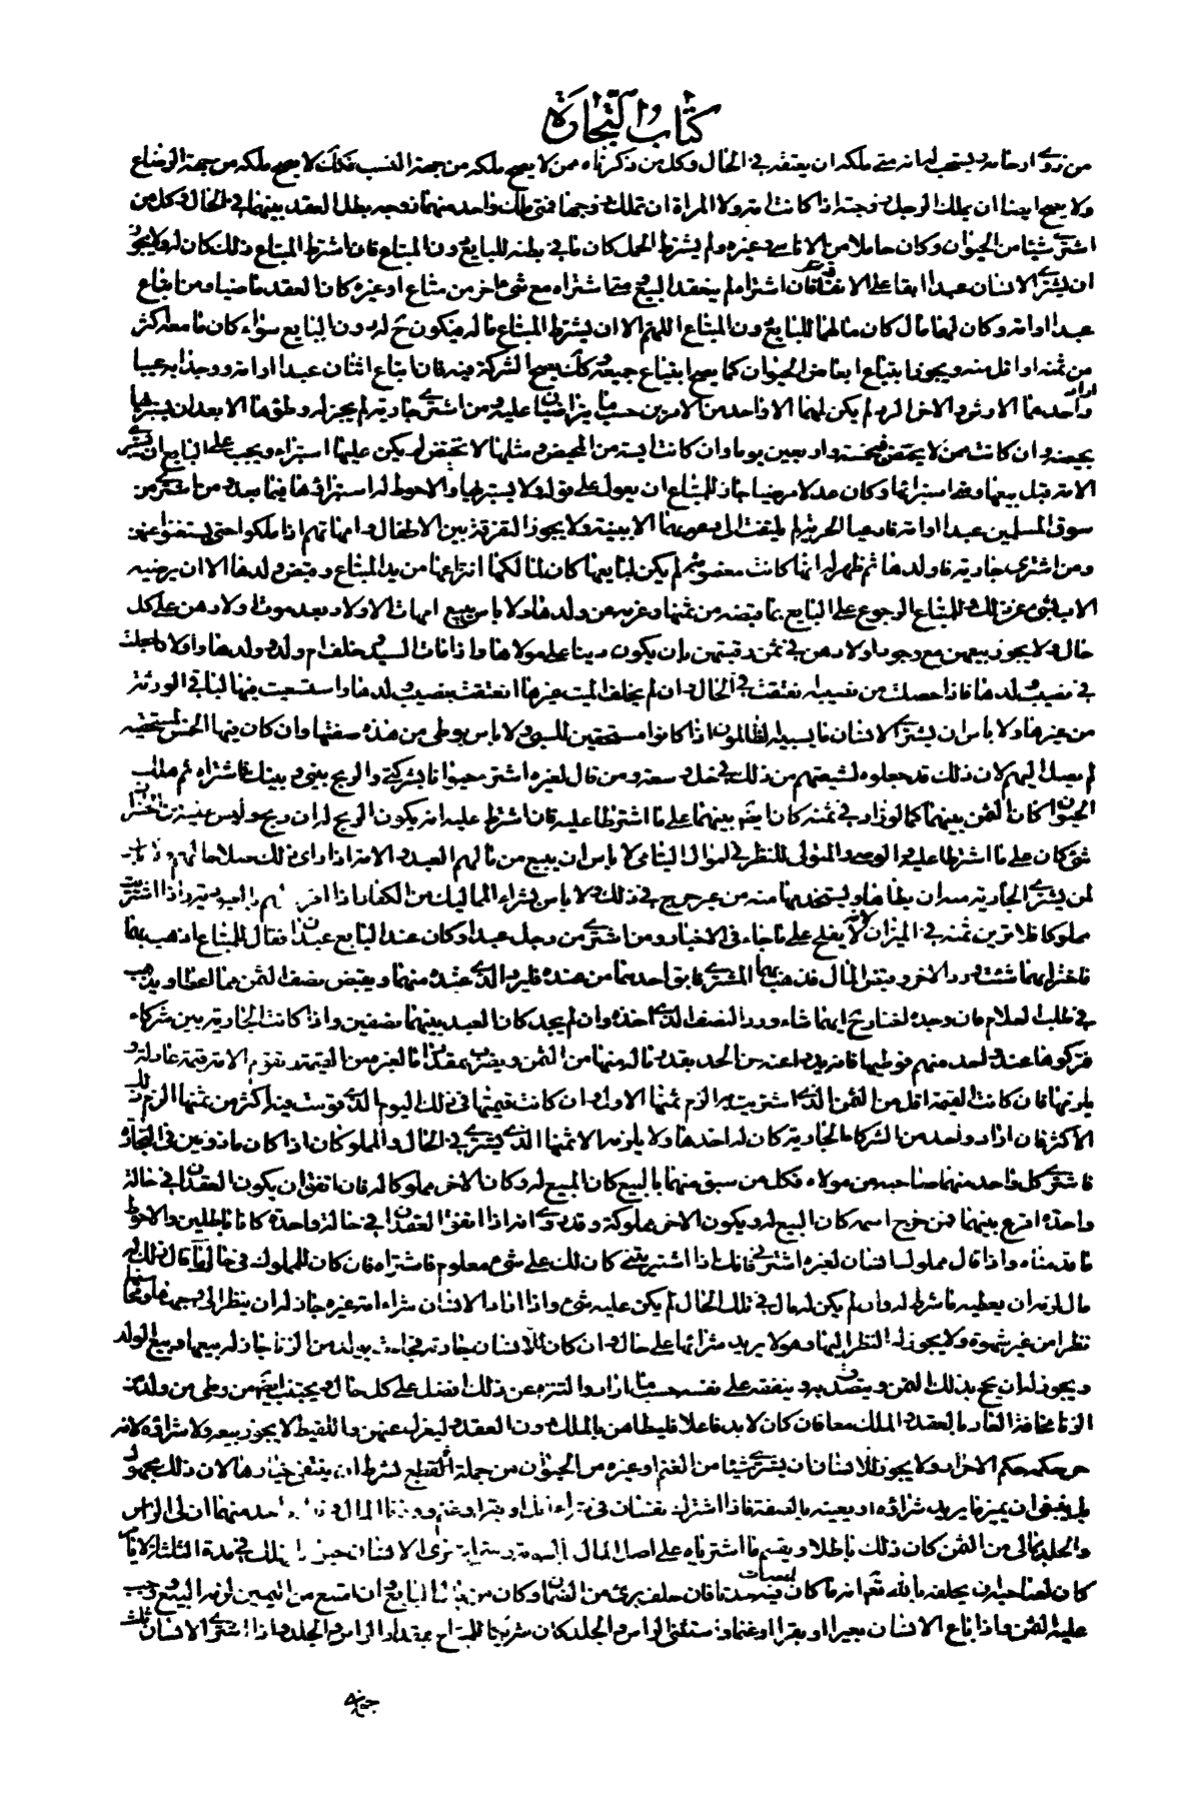 كتاب التجارة
من ذوي ارحامه ويستحب له انه متى ملكه ان يعتقه في الحال وكل من ذكرناه ممن لا يصح ملكه من جهة النسب فكذلك لا يصح ملكه من جهة الرضاع
ولا يصح ايضا ان يملك الرجل زوجته اذا كانت امة ولا المراة ان تملك زوجها فمتى ملك واحد منهما زوجه بطل العقد بينهما في الحال وكل من
اشترى شيئا من الحيوان وكان حاملا من الاناسي وغيره ولم يشترط الحمل كان ما في بطنه للبايع دون المبتاع فان اشترط المبتاع ذلك كان له ولا يجوز
ان يشتري الانسان عبدا ابقا على الانفراد فان اشتراه لم ينعقد البيع ومتى اشتراه مع شئ اخر من متاع او غيره كان العقد ماضيا ومن ابتاع
عبدا او امة وكان لهما مال كان مالهما للبايع دون المبتاع اللهم الا ان يشترط المبتاع ماله فيكون ح له دون البايع سواء كان ما معه اكثر
من ثمنه او اقل منه ويجوز ابتياع ابعاض الحيوان كما يصح ابتياع جميعه وكك يصح الشركة فيه فان ابتاع اثنان عبدا او امة ووجدا به عيبا
واراد احدهما الارش والاخر الرد لم يكن لهما الا واحد من الامرين حسب ما يتراضيان عليه ومن اشترى جارية لم يجز له وطؤها الا بعد ان يستبرئها
بحيضة وان كانت ممن لا يحيض فخمسة واربعين يوما وان كانت ايسة من المحيض ومثلها لا تحيض لم يكن عليها استبراء ويجب على البايع ان يستبرئ
الامة قبل بيعها ومتى استبراها وكان عدلا مرضيا جاز للمبتاع ان يعول على قوله ولا يستبرئها والاحوط له استبراؤها فيما بعد ومن اشترى من
سوق المسلمين عبدا او امة فادعيا الحرية لم يلتفت الى دعويهما الا ببينة ولا يجوز التفرقة بين الاطفال وامهاتهم اذا ملكوا حتى يستغنوا عنهن
ومن اشترى جارية فاولدها ثم ظهر له انها كانت مغصوبة لم يكن لبايعها كان لمالكها انتزاعها من يد المبتاع وقبض ولدها الا ان يرضيه
الاب بشئ عن ذلك وللمبتاع الرجوع على البايع بما قبضه من ثمنها وغرمه عن ولدها ولا باس ببيع امهات الاولاد بعد موت اولادهن على كل
حال ولا يجوز بيعهن مع وجود اولادهن الا في ثمن رقبتهن بان يكون دينا على مولاها واذا مات السيد وخلف ام ولد وولدها واولادا جعلت
في نصيب ولدها فاذا حصلت من نصيبه انعتقت في الحال وان لم يخلف الميت غيرها انعتقت بنصيب ولدها واستسعيت فيما لباقي الورثة
من غيرها ولا باس ان يشتري الانسان ما يسبيه الظالمون اذا كانوا مستحقين للسبي ولا باس بوطي من هذه صفتها وان كان فيها الخمس لمستحقيه
لم يصل اليهم لان ذلك قد جعلوه لشيعتهم من ذلك في حل وسعة ومن قال لغيره اشتر حيوانا بشركتي والربح بيني وبينك فاشتراه ثم هلك
الحيوان كان الثمن بينهما كما لو زاد في ثمنه كان ايضا بينهما على ما اشترطا عليه فان اشترط عليه انه يكون الربح له ان ربح وليس عليه من الخسران
شئ كان على ما اشترطا عليه والوصي والمتولي للنظر في اموال اليتامى لا باس ان يبيع من مالهم العبد والامة اذا راى ذلك صلاحا لهم
لمن يشتري الجارية منه ان يطاها ويستخدمها من غير حرج في ذلك ولا باس بشراء المماليك من الكفار اذا اقروا لهم بالعبودية واذا اشتريت
مملوكا فلا ترين ثمنه في الميزان لانه لا يفلح على ما جاء في الاخبار ومن اشترى من رجل عبدا وكان عند البايع عبدان فقال للمبتاع اذهب بهما
فاختر ايهما شئت ورد الاخر وقبض المال فذهب بهما المشتري فابق احدهما من عنده فليرد الذي عنده منهما ويقبض نصف الثمن مما اعطا ويذهب
في طلب الغلام فان وجده اختار ح ايهما شاء ورد النصف الذي اخذه وان لم يجد كان العبد بينهما نصفين واذا كانت الجارية بين شركاء
فتركوها عند واحد منهم فوطيها فانه يدرا عنه من الحد بقدر ماله منها من الثمن ويضرب بمقدار ما لغيره من القيمة وتقوم الامة قيمة عادلة و
يلزمها فان كانت القيمة اقل من الثمن الذي اشتريت به الزم ثمنها الاول وان كانت قيمتها في ذلك اليوم الذي قومت فيه اكثر من ثمنها الزم ذلك
الاكثر فان اراد واحد من الشركاء الجارية كان له اخذها ولا يلزمه الا ثمنها الذي يشترى في الحال والمملوكان اذا كان ماذونين في التجارة
فاشترى كل واحد منهما صاحبه من مولاه فكل من سبق منهما بالبيع كان البيع له وكان الاخر مملوكا له فان اتفق ان يكون العقدان في حالة
واحدة اقرع بينهما فمن خرج اسمه كان البيع له ويكون الاخر مملوكه وقد روي انه اذا اتفق العقدان في حالة واحدة كانا باطلين والاحوط
ما قدمناه واذا قال مملوك انسان لغيره اشترني فانك اذا اشتريتني كان لك علي شئ معلوم فاشتراه فان كان للمملوك في حال ما قال ذلك له
مال لزمه ان يعطيه ما شرط له وان لم يكن له مال في تلك الحال لم يكن عليه شئ واذا اراد الانسان شراء امة غيره جاز له ان ينظر الى وجهها ومحاسنها
نظرا من غير شهوة ولا يجوز له النظر اليها وهو لا يريد شرائها على حال وان كان للانسان جارية فجاءت بولد من الزنا جاز له بيعها وبيع الولد
ويجوز له ان يحج بذلك الثمن ويتصدق به وينفقه على نفسه حسب ما اراد والتنزه عن ذلك افضل على كل حال ويجتنب ايضا من وطي من ولدت من
الزنا مخافة العار بالعقد والملك معا فان كان لا بد فاعلا فليطاهن بالملك دون العقد وليعزل عنهن واللقيط لا يجوز بيعه ولا شراؤه لانه
حر حكمه حكم الاحرار ولا يجوز للانسان ان يشتري شيئا من الغنم او غيره من الحيوان من جملة القطيع بشرط ان ينتقي خيارها لان ذلك مجهول
بل ينبغي ان يميز ما يريد شراؤه او يعينه بالصفة فاذا اشترك نفسان في شراء ابل او بقر او غنم ووزنا المال وقال احدهما ان لي الراس
والجلد بمالي من الثمن كان ذلك باطلا ويقسم ما اشترياه على اصل المال
كان لصاحبه ان يحلفه بالله تعالى انه ما كان فان حلف برئ من الثمن وكان من البايع وان امتنع من اليمين لزمه البيع ووجب
عليه الثمن واذا باع الانسان بعيرا او بقرا او غنما واستثنى الراس والجلد كان شريكا للمبتاع بمقدار الراس والجلد واذا اشترى الانسان ثلث